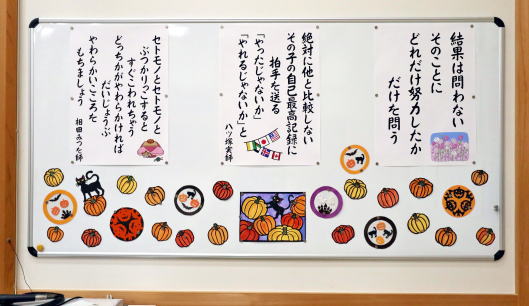 結果は問わない
そのことに
どれだけ努力したか
だけを問う
絶対に他と比較しない
その子の自己最高記録に
拍手を送る
「やったじゃないか」
「やれるじゃないか」と
八ツ塚実師
セトモノとセトモノと
ぶつかりっこすると
すぐこわれちゃう
どっちかがやわらかければ
だいじょうぶ
やわらかいこころを
もちましょう
相田みつを師